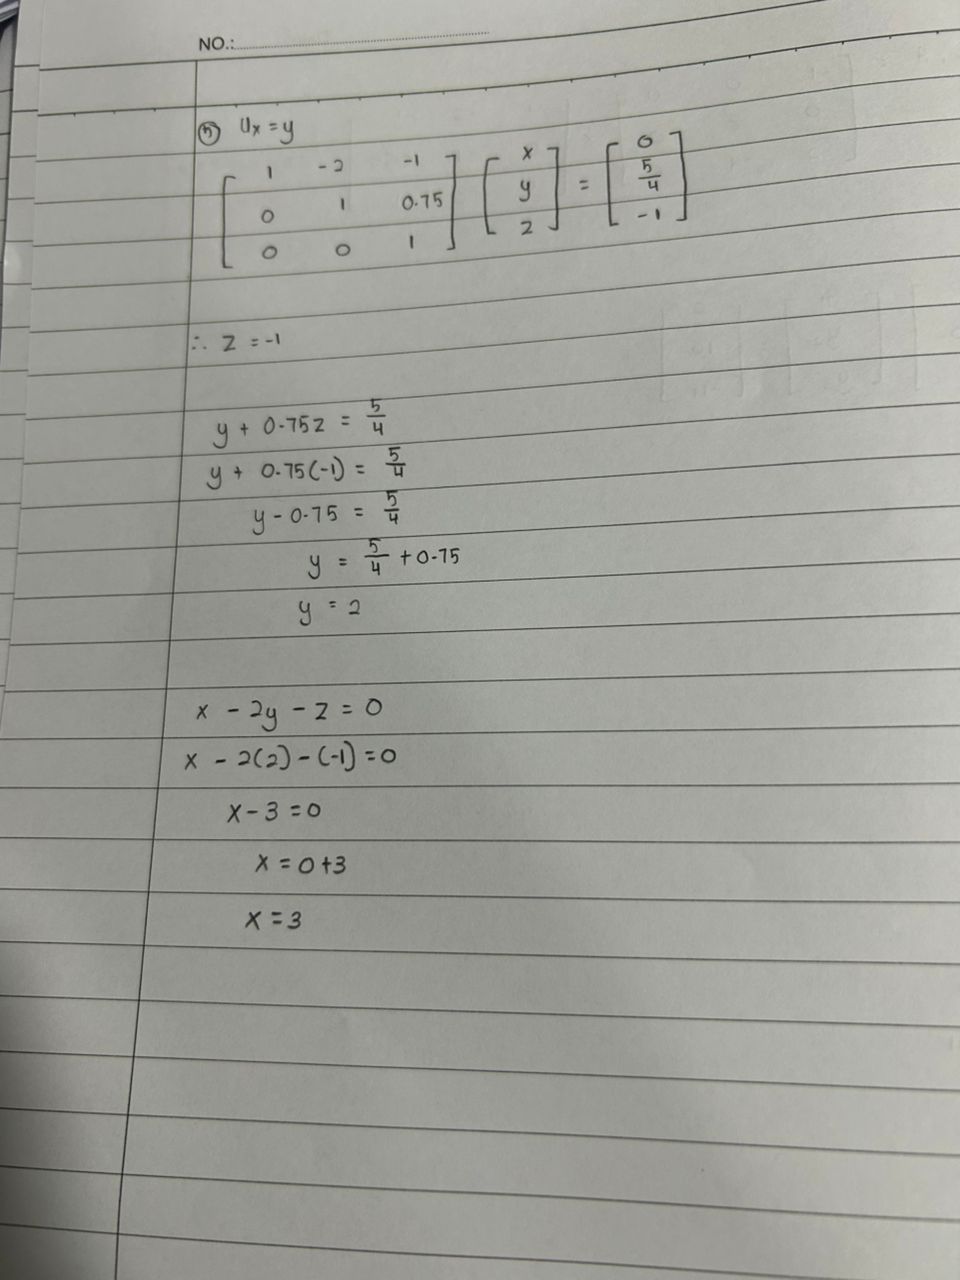 NO.:
⑤ Ux = y
[1 -2 -1; 0 1 0.75; 0 0 1] [x; y; z] = [0; 5/4; -1]
∴ z = -1
y + 0.75z = 5/4
y + 0.75(-1) = 5/4
y - 0.75 = 5/4
y = 5/4 + 0.75
y = 2
x - 2y - z = 0
x - 2(2) - (-1) = 0
x - 3 = 0
x = 0 + 3
x = 3